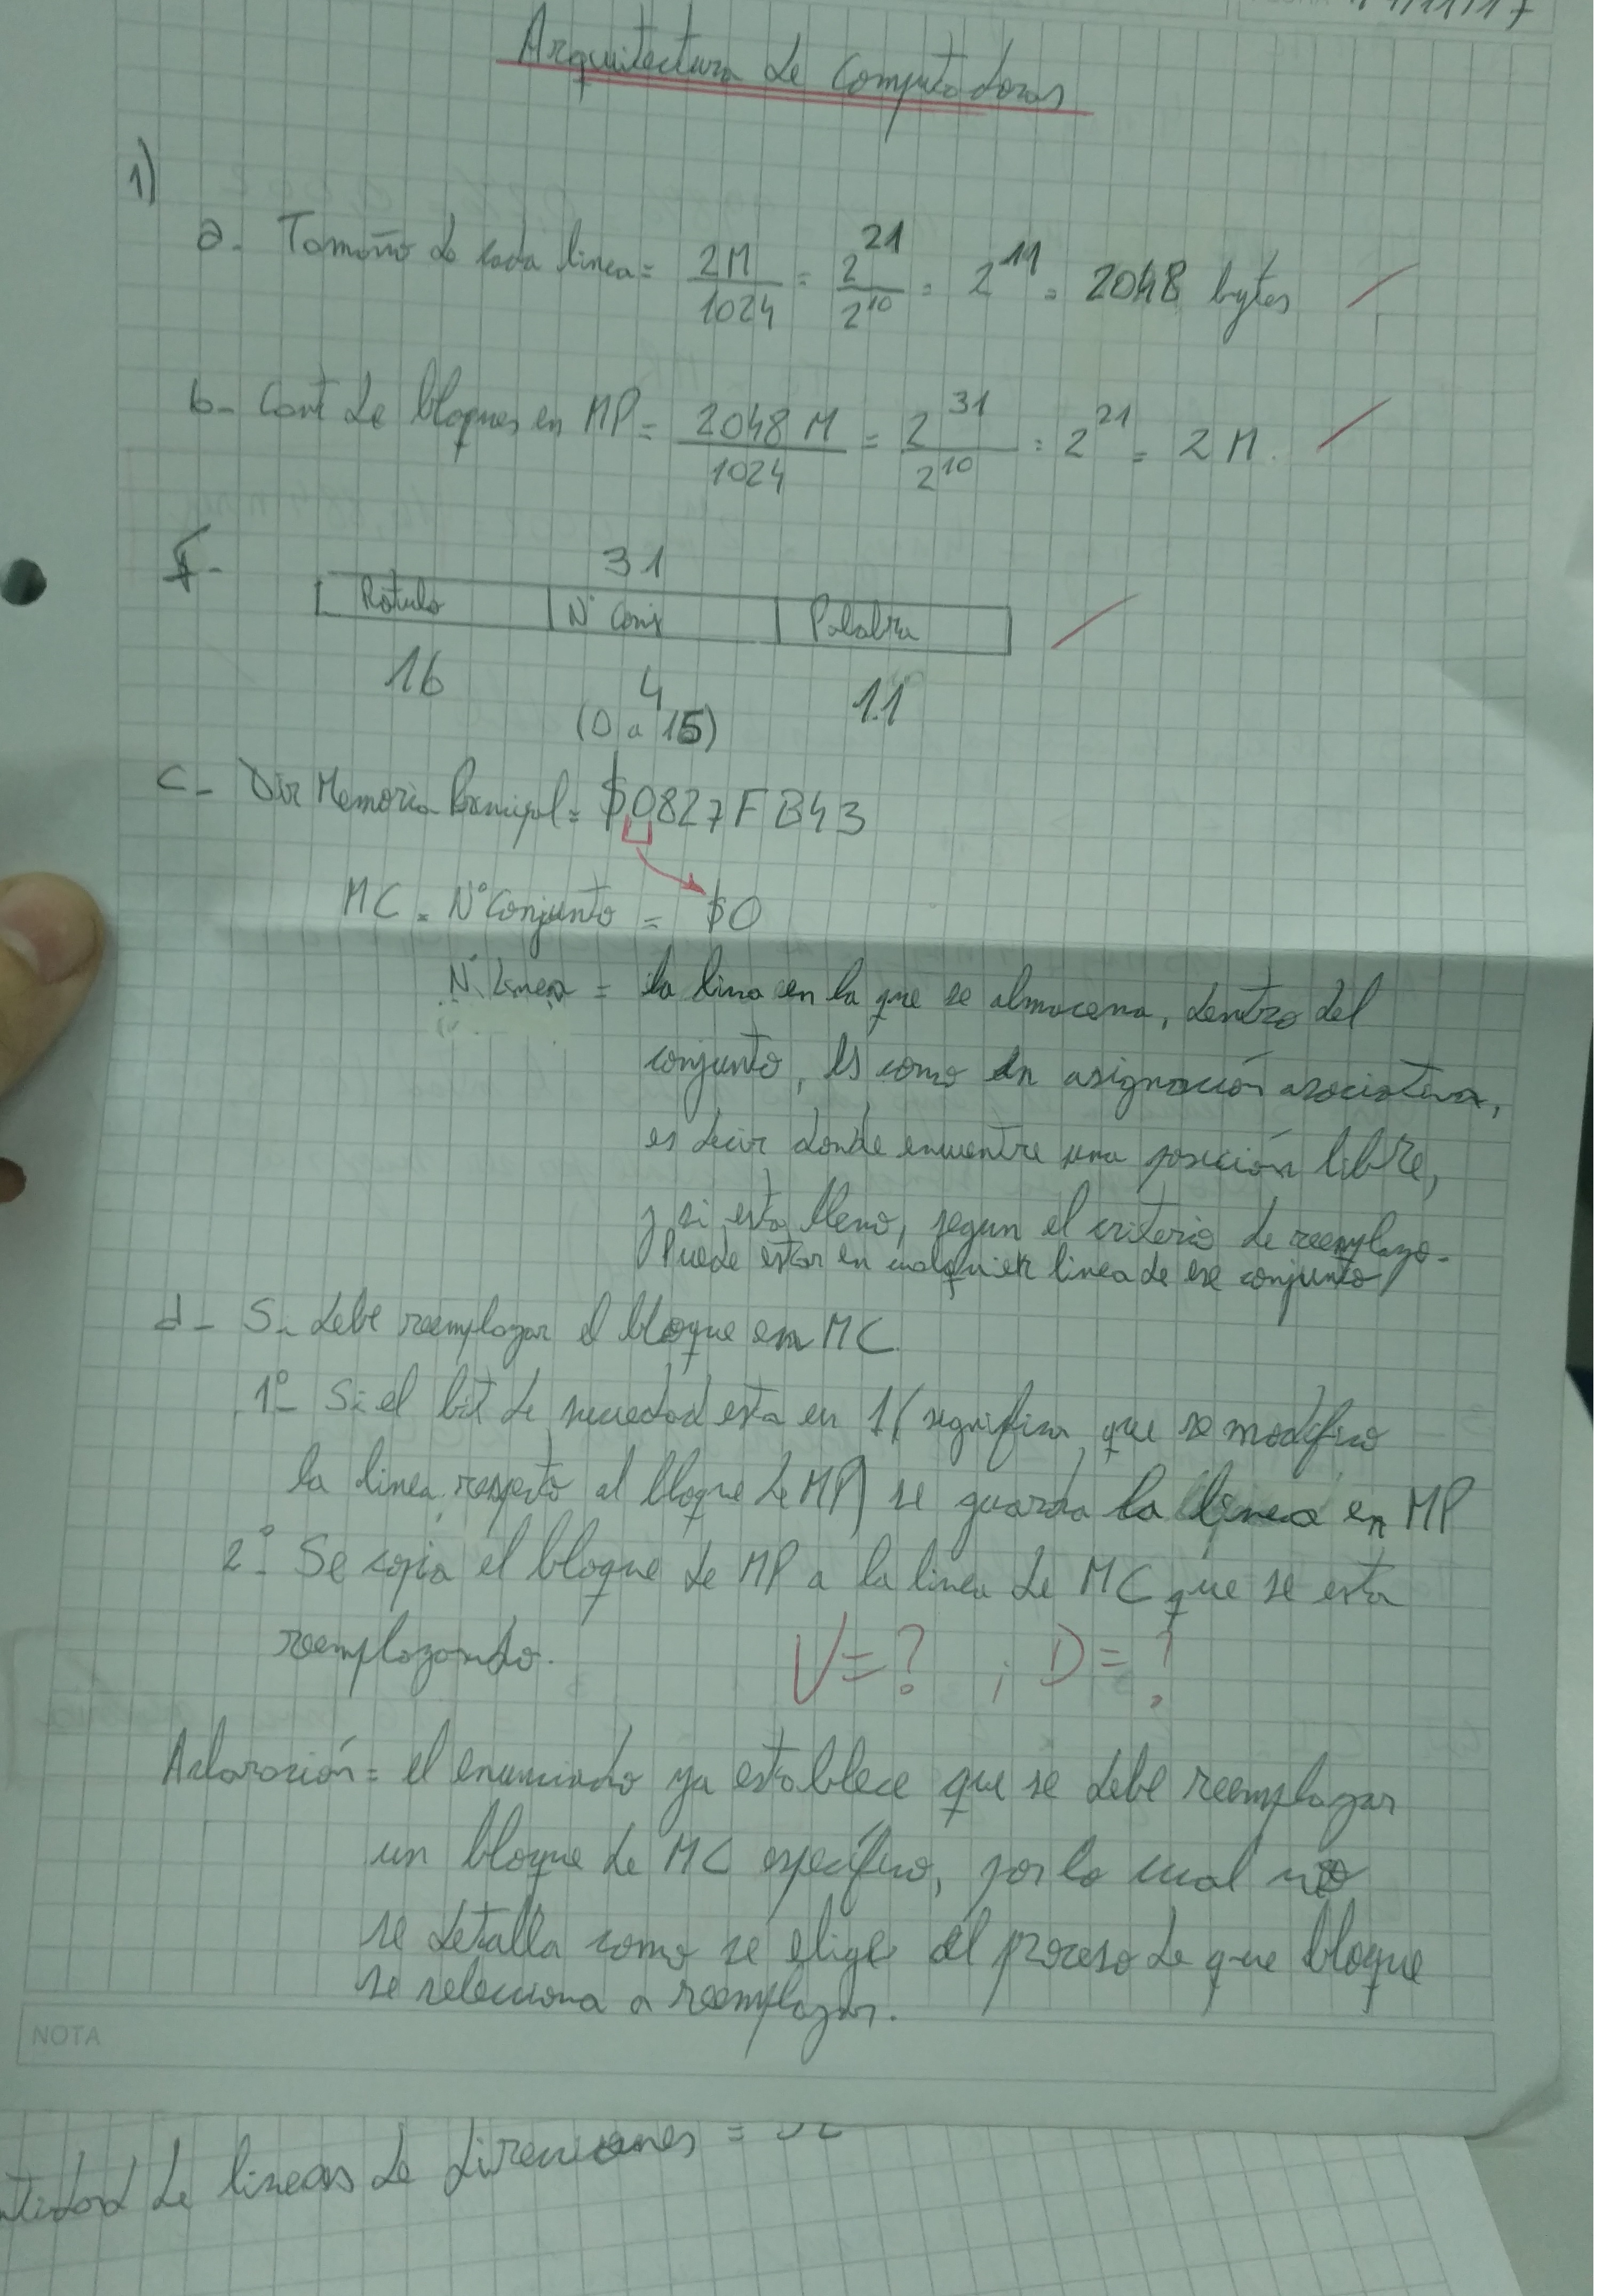 4/11/17
Arquitectura de Computadoras
1)
a- Tamaño de cada linea = 2M/1024 = 2^21/2^10 = 2^11 = 2048 bytes
b- Cant de bloques en MP = 2048 M/1024 = 2^31/2^10 = 2^21 = 2M.
31
Rótulo N° Conj Palabra
16 4 11
(0 a 15)
c- Dir Memoria Principal = $0827FB43
MC = N° Conjunto = $0
N° Linea = la linea en la que se almacena, dentro del
conjunto, es como en asignación asociativa,
es decir donde encuentre una posición libre,
y si esta lleno, segun el criterio de reemplazo.
Puede estar en cualquier linea de ese conjunto
d- Si debe reemplazar el bloque en MC.
1°- Si el bit de suciedad esta en 1 (significa que se modifico
la linea respecto al bloque de MP) se guarda la linea en MP
2°- Se copia el bloque de MP a la linea de MC que se esta
reemplazando.
V=? ; D=?
Aclaración = el enunciado ya establece que se debe reemplazar
un bloque de MC especifico, por lo cual no
se detalla como se elige el proceso de que bloque
se selecciona a reemplazar.
NOTA
de lineas de direcciones =